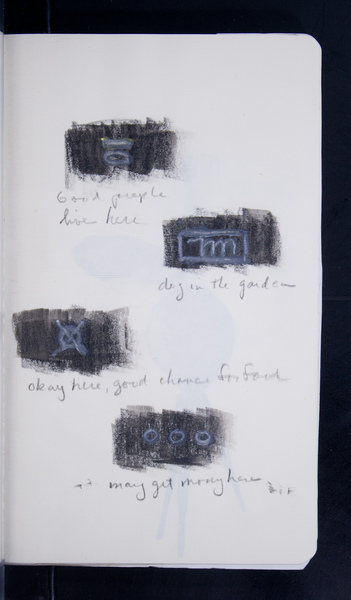 Good people
live here
dog in the garden
okay here, good chance for food
may get money here